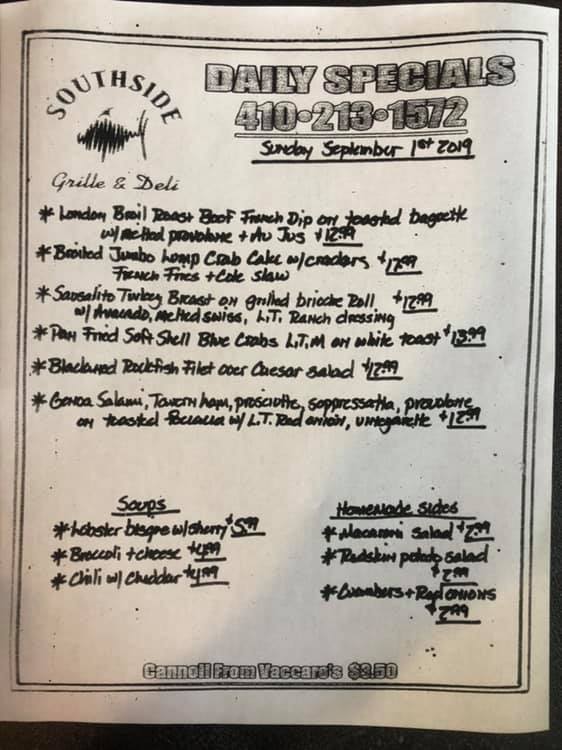 SOUTHSIDE
Grille & Deli
DAILY SPECIALS
410•213•1572
Sunday September 1st 2019
* London Broil Roast Beef French Dip on toasted baguette
w/ melted provolone + Au Jus $12.99
* Broiled Jumbo Lump Crab Cake w/ crackers
French Fries + Cole Slaw
* Sausalito Turkey Breast on grilled brioche Roll $12.99
w/ Avocado, melted swiss, L.T. Ranch dressing
* Pan Fried Soft Shell Blue Crabs L.T.M on white toast $13.99
* Blackened Rockfish Filet over Caesar salad $12.99
* Genoa Salami, Tavern ham, prosciutto, soppressatta, provolone
on toasted focaccia w/ L.T. Red onion, vinegarette $12.99
Soups
* Lobster bisque w/ sherry $5.99
* Broccoli + cheese $4.99
* Chili w/ Cheddar $4.99
Homemade Sides
* Macaroni Salad $2.99
* Redskin potato salad
$2.99
* Cucumbers + Red onions
$2.99
Cannoli From Vaccaro's $3.50